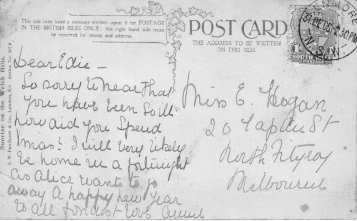 This side may have a message written upon it for POSTAGE
IN THE BRITISH ISLES ONLY - the right hand side must
be reserved for stamp and address.
POST CARD
THE ADDRESS TO BE WRITTEN
ON THIS SIDE.
Dear Edie -
So sorry to hear that
you have been so ill
how did you spend
Xmas? I will very likely
be home in a fortnight
as Alice wants to go
away A happy new year
to all fondest love
Miss E. Hogan
20 St
North Fitzroy
Melbourne